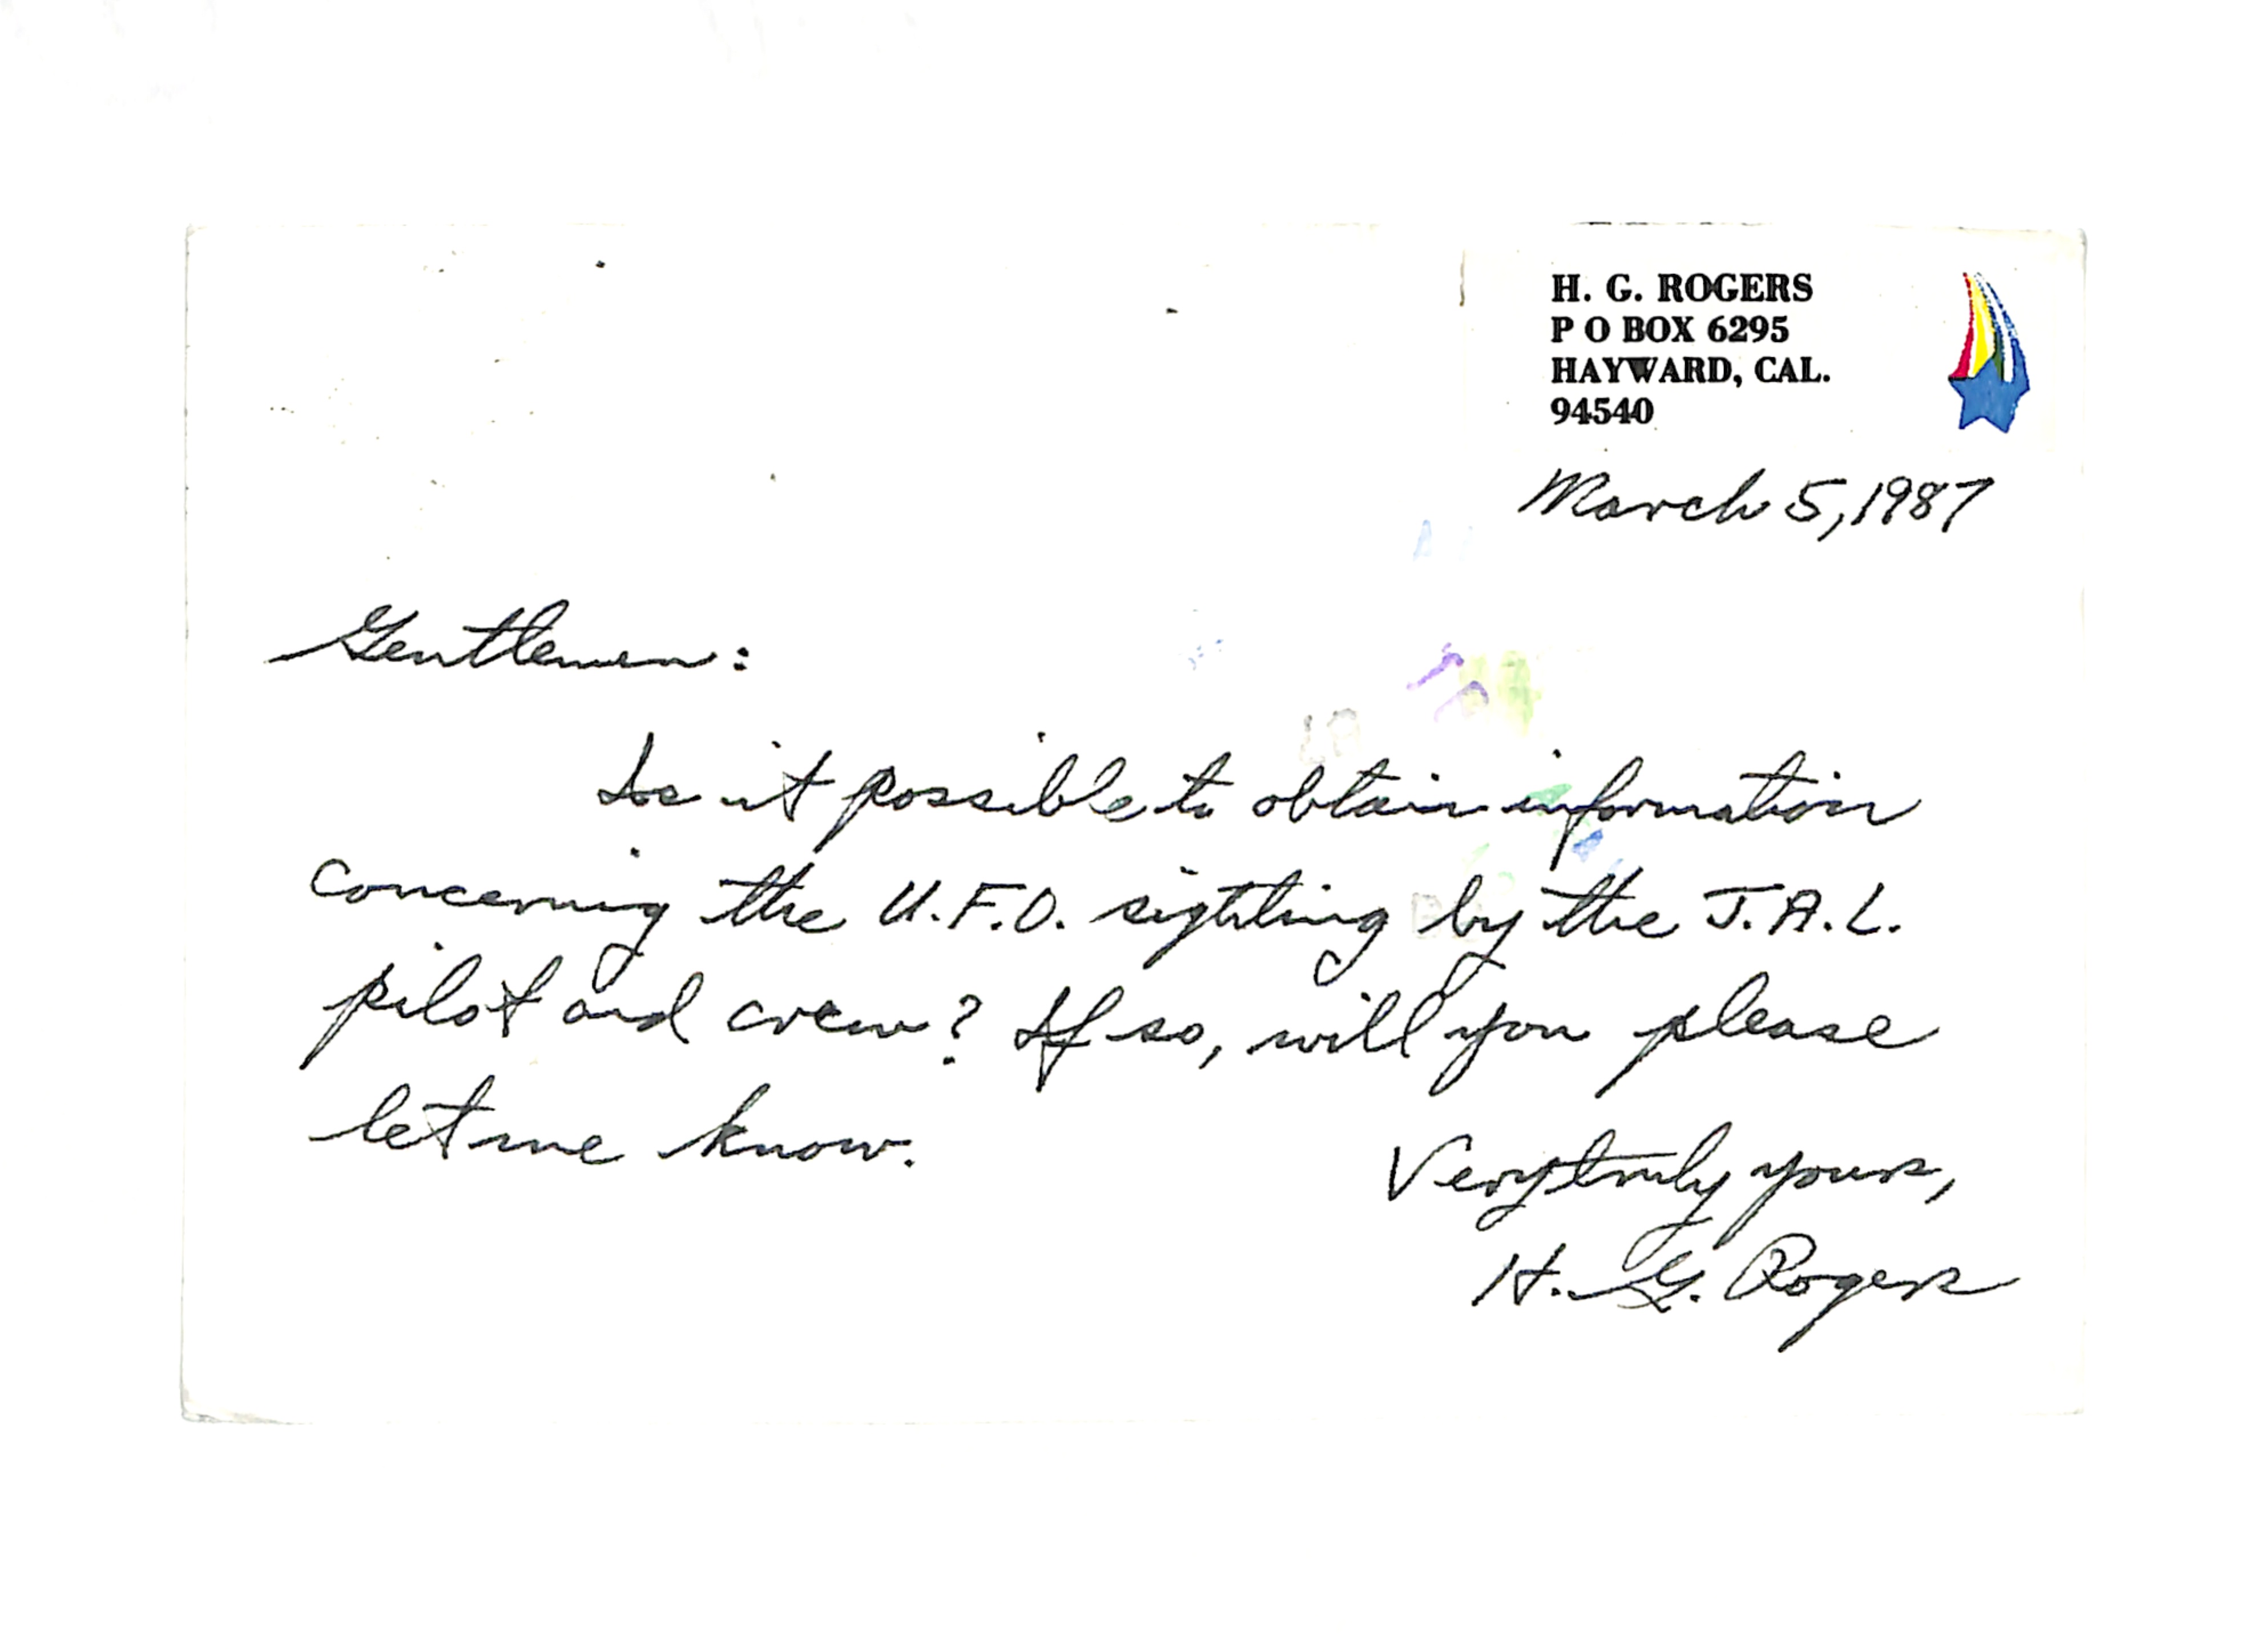 H. G. ROGERS
P O BOX 6295
HAYWARD, CAL.
94540
March 5, 1987
Gentlemen:
Is it possible to obtain information
concerning the U.F.O. sighting by the J.A.L.
pilot and crew? If so, will you please
let me know.
Very truly yours,
H. G. Rogers